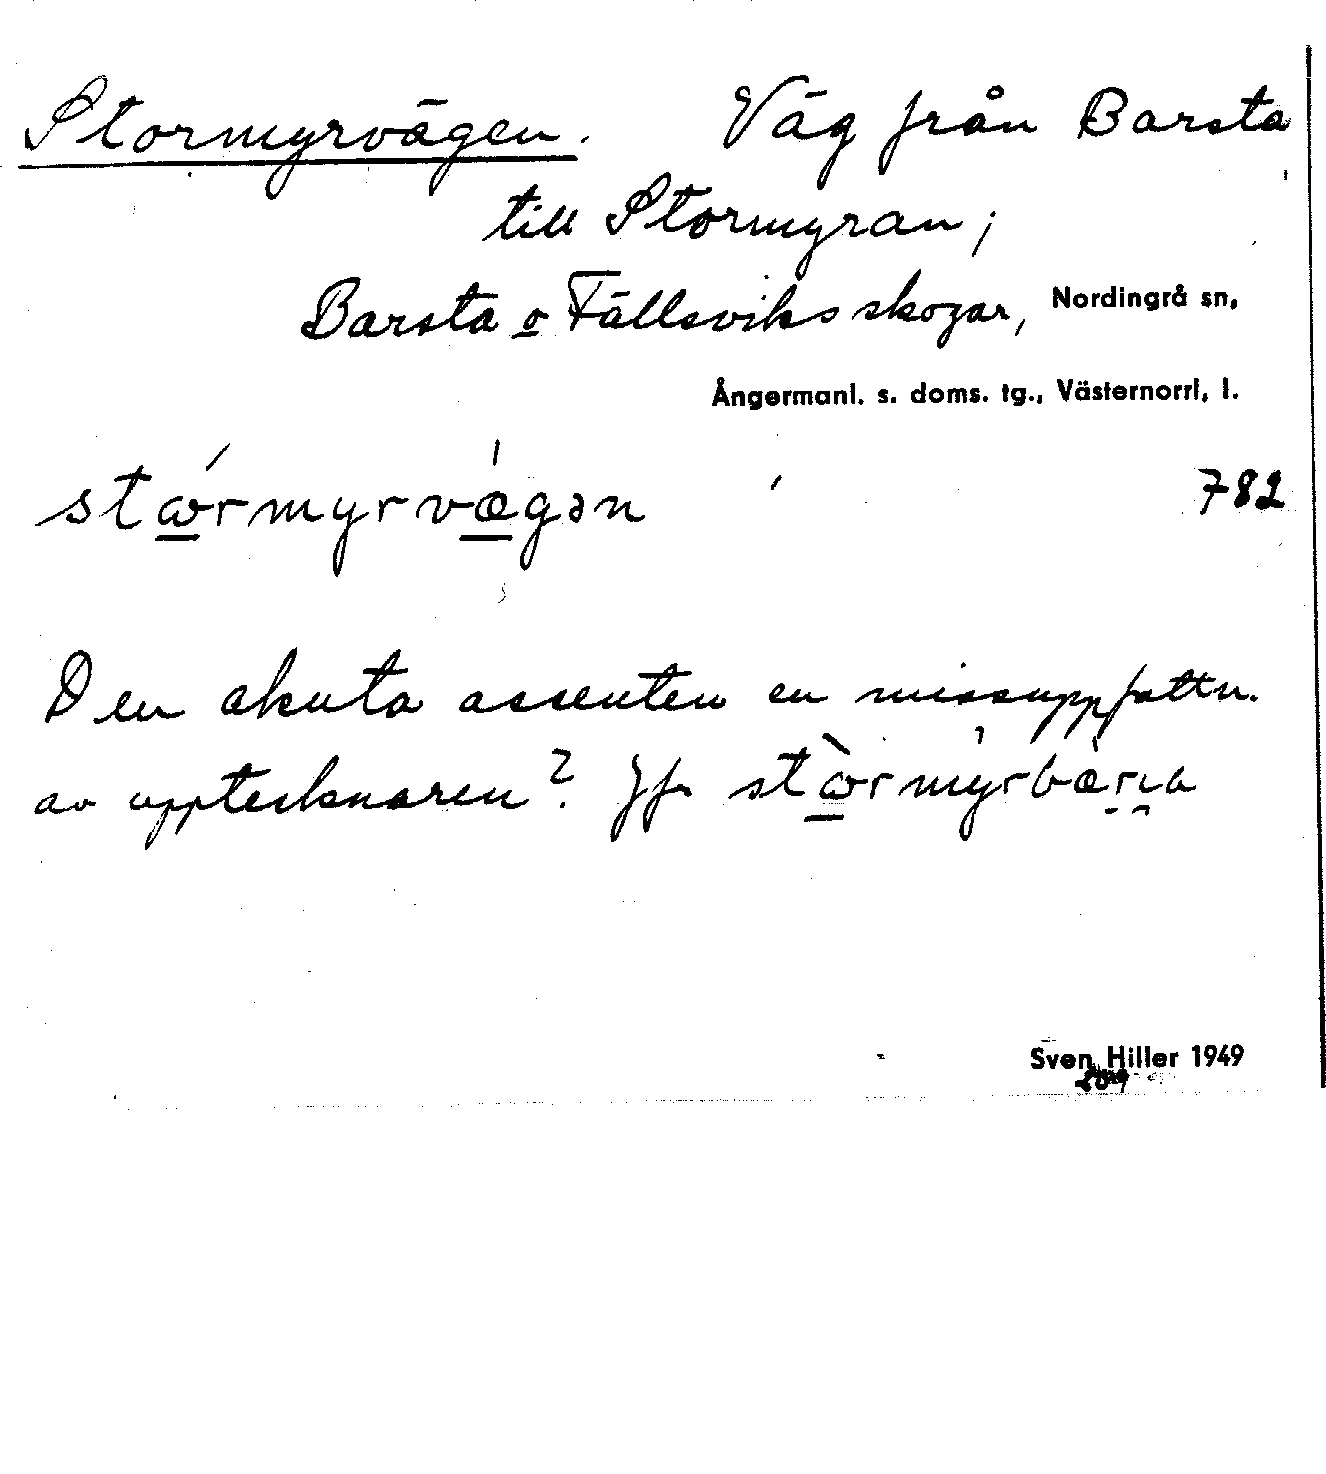 Stormyrvägen. Väg från Barsta
till Stormyran;
Barsta o Fällsviks skogar, Nordingrå sn,
Ångermanl. s. doms. tg., Västernorrl. l.
stɷ́rmyrvæ̍gən 782
Den akuta assenten en missuppfattn.
av upptecknaren? Jfr stɷ̀rmy̍rbæ̀rɳa
Sven Hiller 1949